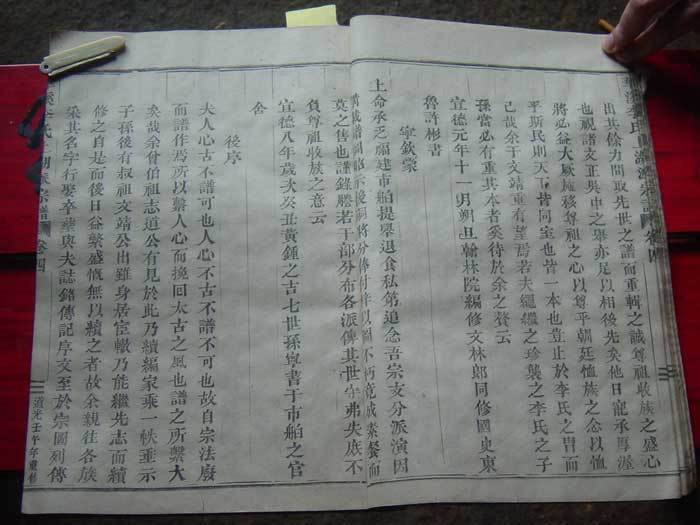 出其餘力間取先世之譜而重輯之誠尊祖收族之盛心
也視諸文正與申之舉亦足以相後先矣他日寵承厚渥
將必益大厥施移尊祖之心以尊乎朝廷恤族之念以恤
平斯民則天下皆同室也皆一本也豈止於李氏之冑而
已哉余于文靖重有望焉若夫繩繼之珍襲之李氏之子
孫當必有重其本者奚待於余之贅云
宣德元年十一月朔旦翰林院編修文林郎同修國史東
魯許彬書
寧欽蒙
上命承乏福建市舶提舉退食私第追念吾宗支分派演因
莫之售也謹錄謄若干部分布各派俾其世守弗失庶不
負尊祖收族之意云
宣德八年歲次癸丑黃鍾之吉七世孫寧書于市舶之官
舍
後序
夫人心古不譜可也人心不古不譜不可也故自宗法廢
而譜作焉所以聯人心而挽回太古之風也譜之所繫大
矣哉余曾伯祖志道公有見於此乃續編家乘一帙垂示
子孫後有叔祖文靖公出雖身居宦轍乃能繼先志而續
修之自是而後日益繁盛慨無以續之者故余親往各族
梁其名字行娶卒葬與夫誌銘傳記序文至於宗圖列傳
卷四
道光壬午年重修